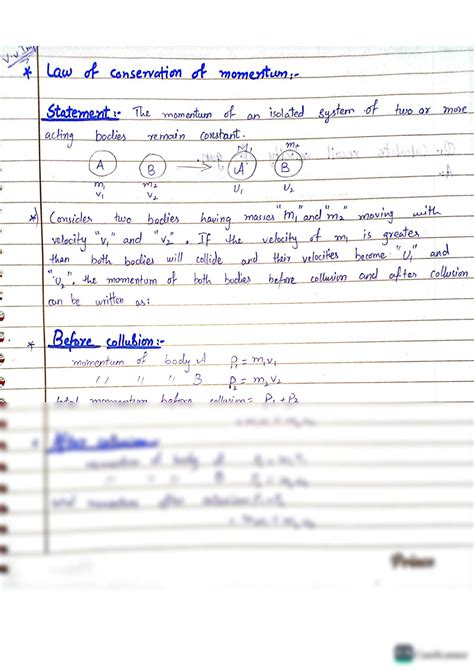 V.V Imp
* Law of conservation of momentum:-
Statement:- The momentum of an isolated system of two or more
acting bodies remain constant.
m₁ m₂
A B → A' B
m₁ m₂ U₁ U₂
V₁ V₂
*) Consider two bodies having masses "m₁" and "m₂" moving with
velocity "v₁" and "v₂". If the velocity of m₁ is greater
than both bodies will collide and their velocities become "U₁" and
"U₂", the momentum of both bodies before collusion and after collusion
can be written as:
* Before collusion:-
momentum of body A P₁ = m₁v₁
〃 〃 〃 B P₂ = m₂v₂
total momentum before collusion = P₁ + P₂
After collusion
momentum of body A
B
total momentum after collusion